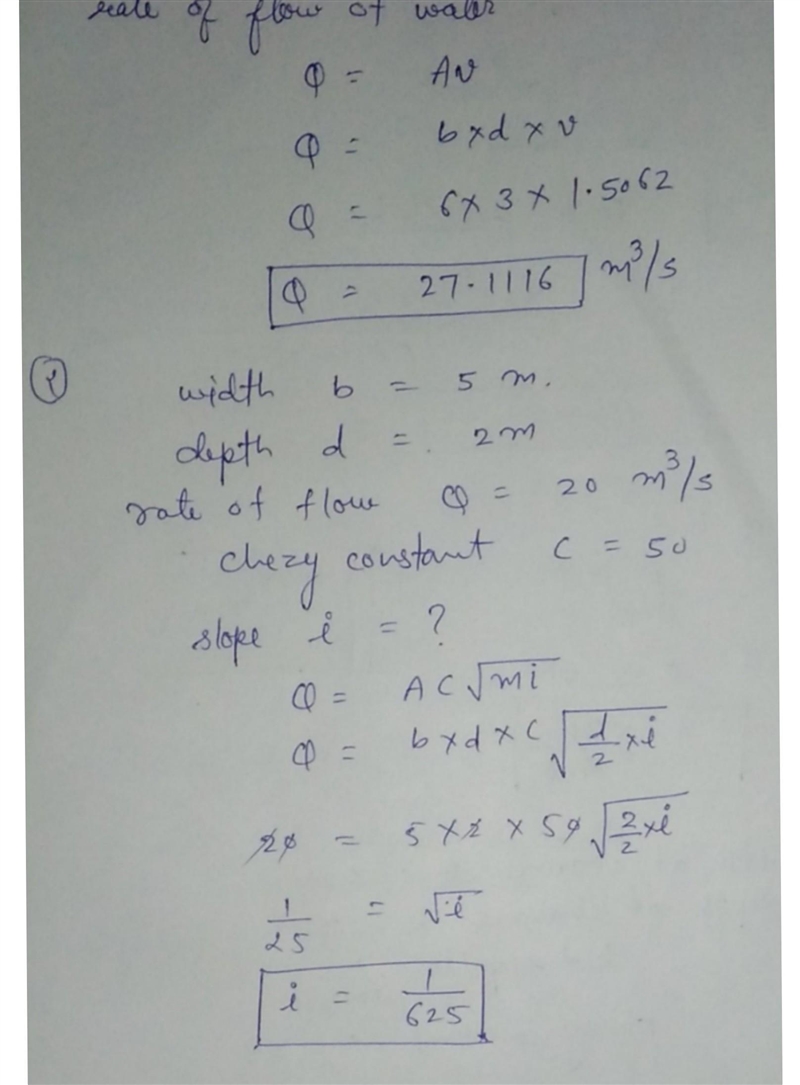 rate of flow of water
Q = AV
Q = b×d×v
Q = 6×3×1.5062
Q = 27.1116 m³/s
② width b = 5 m.
depth d = 2m
rate of flow Q = 20 m³/s
chezy constant C = 50
slope i = ?
Q = AC√mi
Q = b×d×C√(d/2 ×i)
20 = 5×2×50√(2/2 ×i)
1/25 = √i
i = 1/625